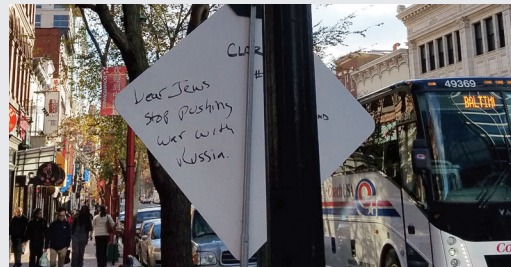 Dear Jews
Stop pushing
war with
Russia.
CLAR
#
49369
BALTIM